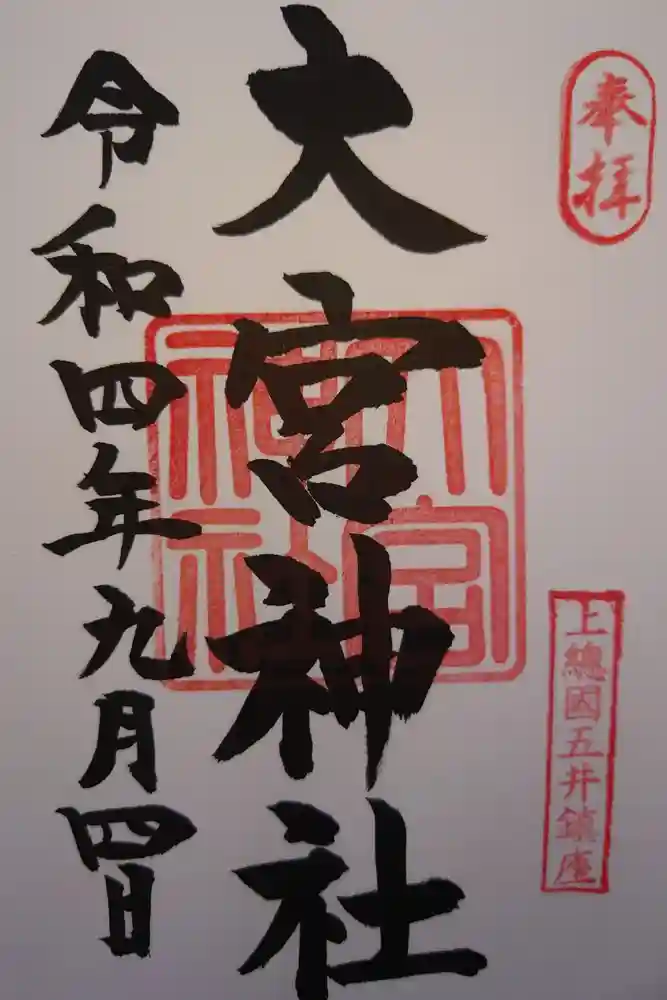 奉拝
上總國五井鎮座
大宮神社
大宮
神社
令和四年九月四日